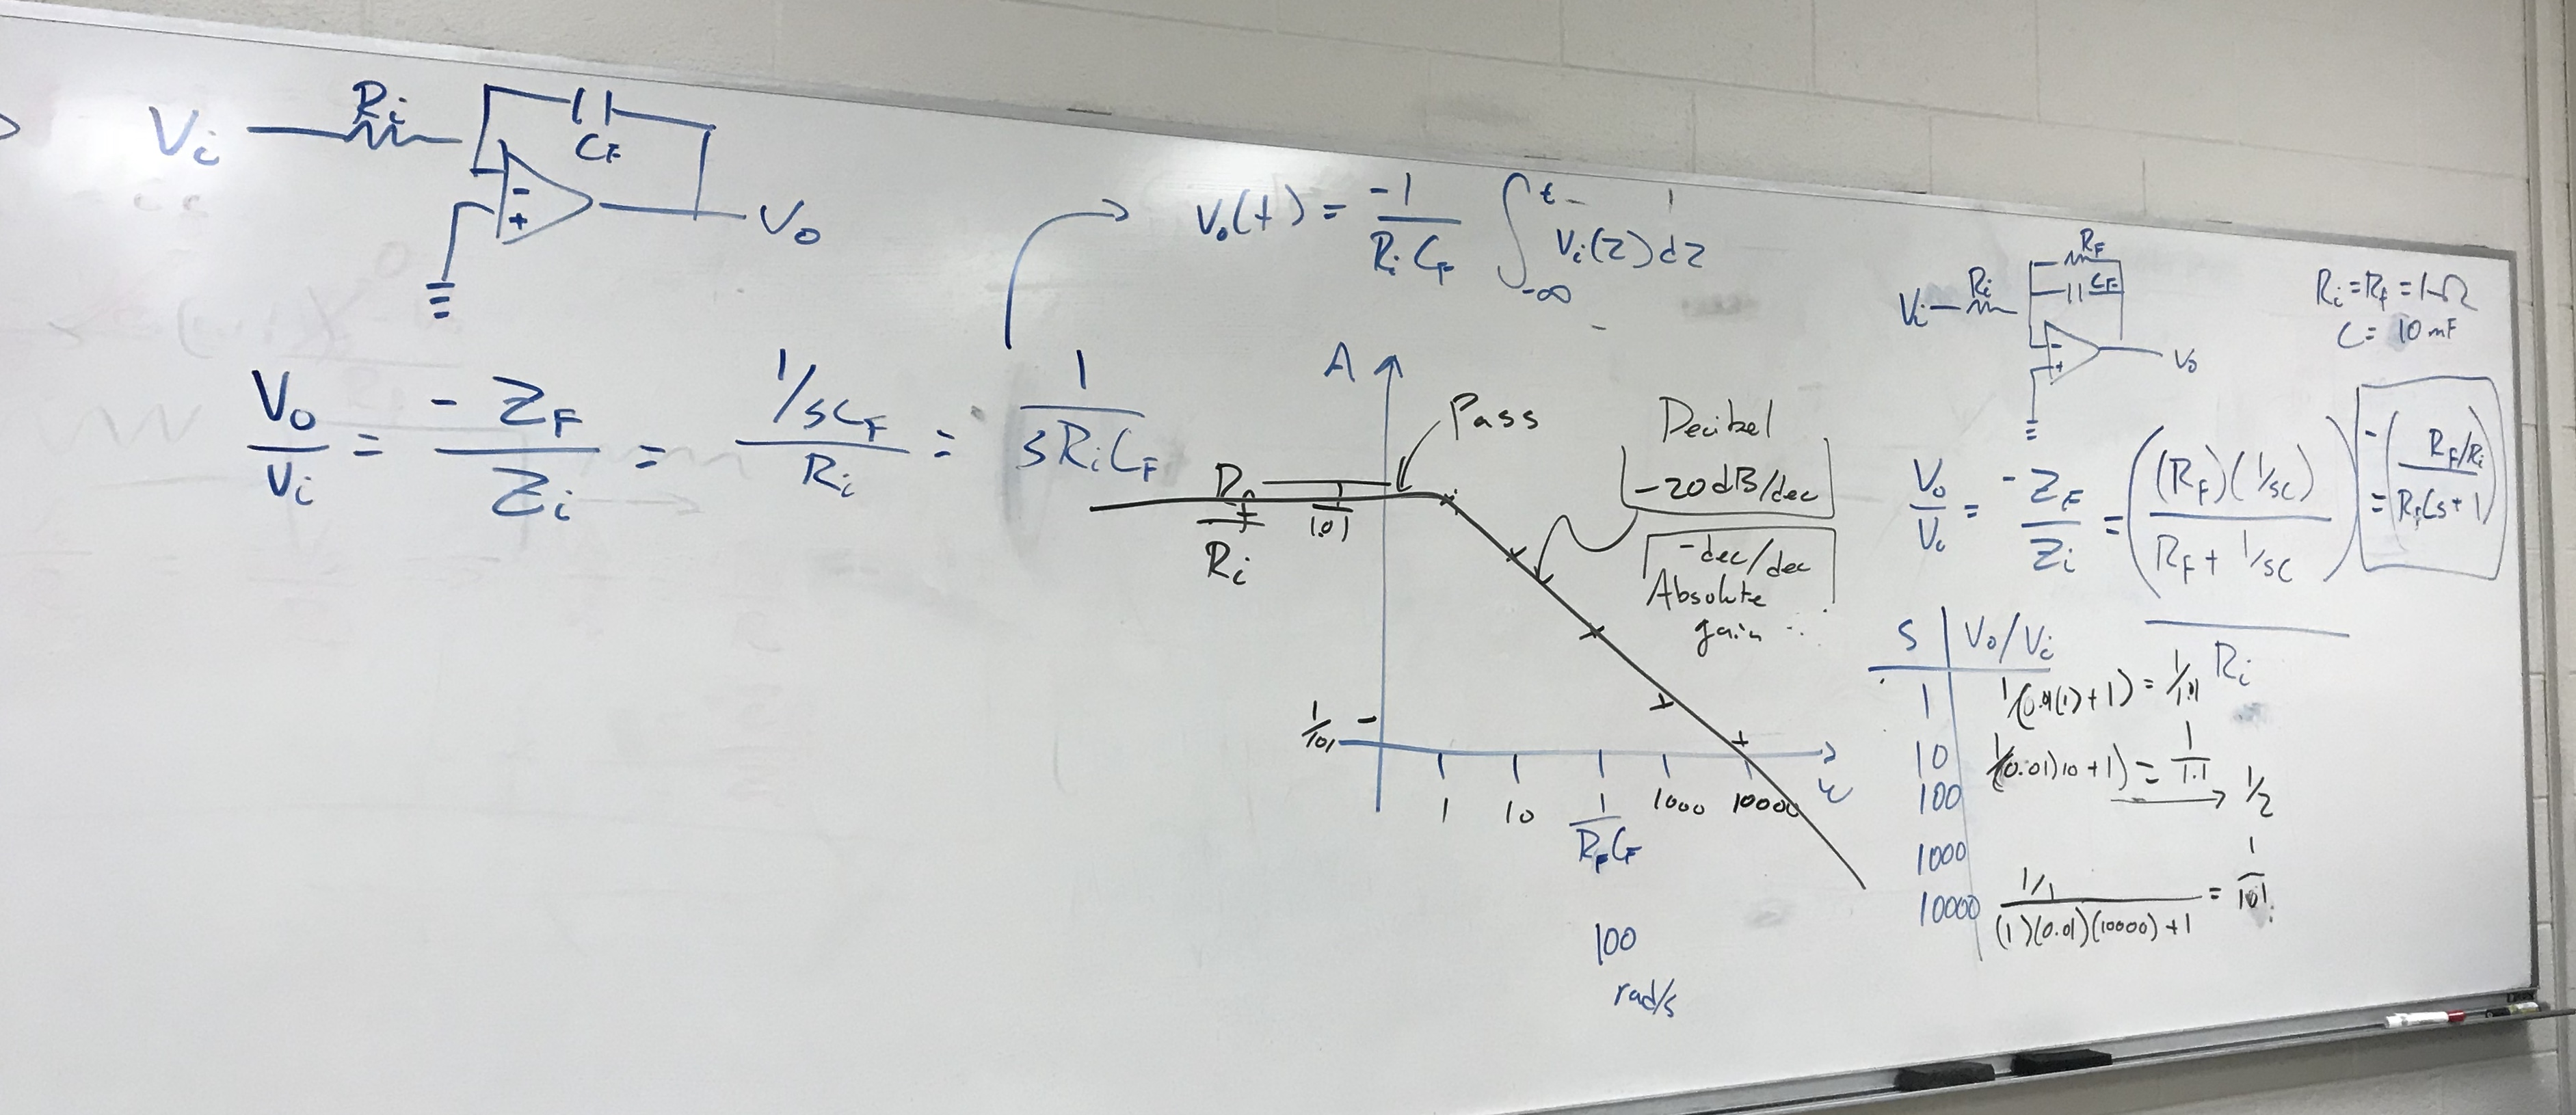 Vi Ri CF
- + Vo
Vo/Vi = -ZF/Zi = (1/sCF)/Ri = 1/(sRiCF)
vo(t) = -1/(RiCF) ∫_-∞^t Vi(z)dz
A
Pass
Decibel
-20dB/dec
-dec/dec
Absolute
gain
Rf/Ri
1/1.01
1/101
1 10 1/(RFCF) 1000 10000 ω
100
rad/s
RF
Vi Ri CF
- + Vo
Ri=Rf=1Ω
C= 10mF
Vo/Vi = -ZF/Zi = ((RF)(1/sC)/(RF+1/sC))/Ri = -((RF/Ri)/(RFCs+1))
S Vo/Vi
1 1/(0.01(1)+1) = 1/1.01
10 1/(0.01)10+1) = 1/1.1
100 → 1/2
1000
10000 (1/1)/((1)(0.01)(10000)+1) = 1/101